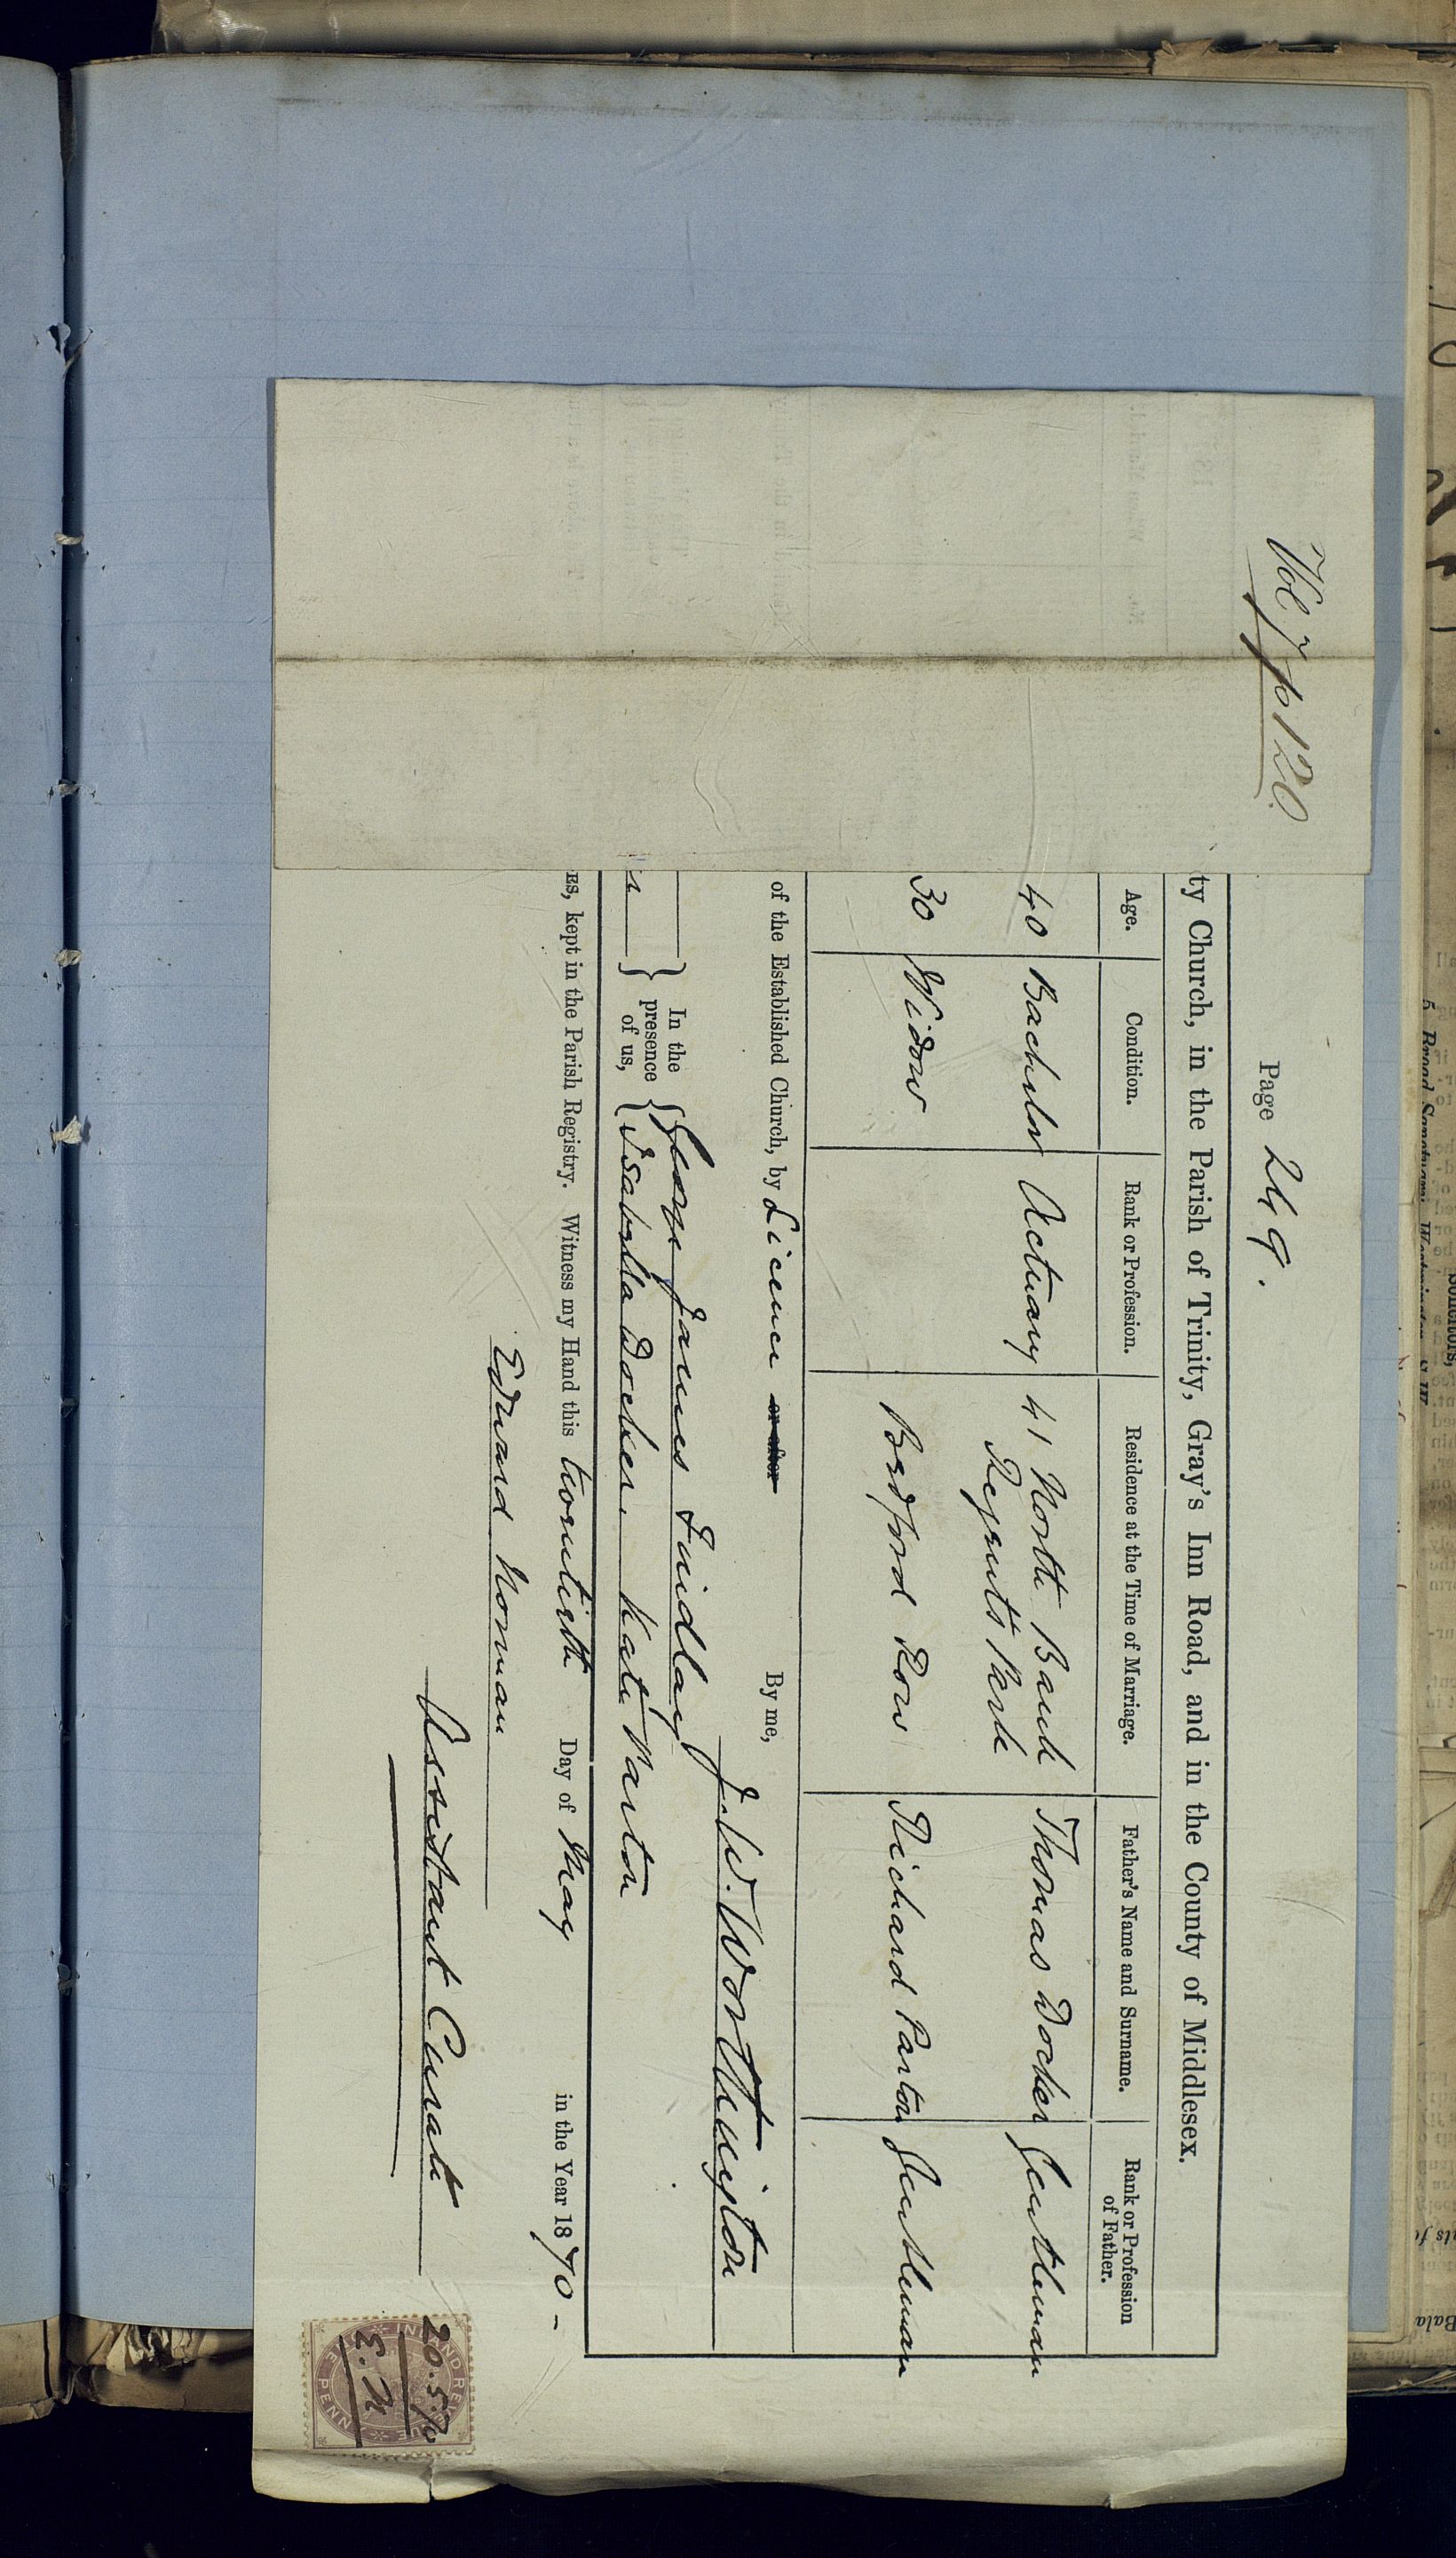 Vol 7 p 120
Page 249.
ty Church, in the Parish of Trinity, Gray's Inn Road, and in the County of Middlesex.
Age. Condition. Rank or Profession. Residence at the Time of Marriage. Father's Name and Surname. Rank or Profession of Father.
40 Bachelor Actuary 41 North Bank Regents Park Thomas Docker Gentleman
30 Widow Bedford Row Richard Parton Gentleman
of the Established Church, by Licence or after By me,
J. W. Worthington
In the presence of us, George James Findlay
Isabella Docker. Kate Parton
ES, kept in the Parish Registry. Witness my Hand this twentieth Day of May in the Year 1870 -
Edward Norman
Assistant Curate
20.5.70
E. N
INLAND REVENUE
ONE PENNY